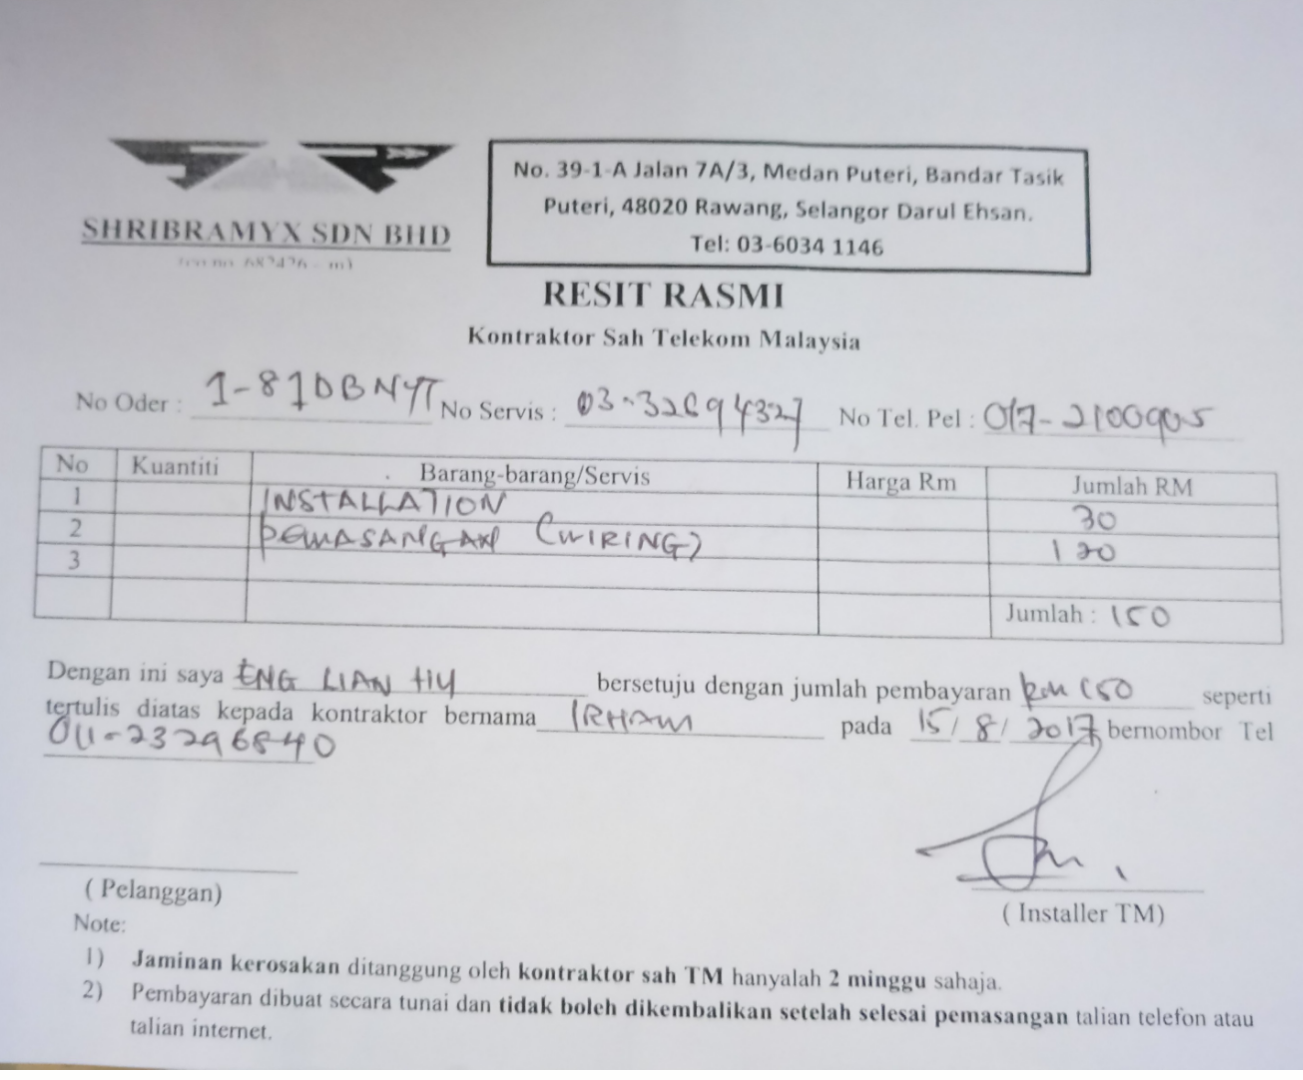 SHRIBRAMYX SDN BHD
No. 39-1-A Jalan 7A/3, Medan Puteri, Bandar Tasik
Puteri, 48020 Rawang, Selangor Darul Ehsan.
Tel: 03-6034 1146
RESIT RASMI
Kontraktor Sah Telekom Malaysia
No Oder : 1-81DBNYT No Servis : 03-32694327 No Tel. Pel : 017-2100905
No Kuantiti Barang-barang/Servis Harga Rm Jumlah RM
1 INSTALLATION 30
2 PEMASANGAN (WIRING) 120
3
Jumlah : 150
Dengan ini saya ENG LIAN HIY bersetuju dengan jumlah pembayaran RM 150 seperti
tertulis diatas kepada kontraktor bernama IRHAM pada 15/8/2017 bernombor Tel
011-23296840
( Pelanggan)
( Installer TM)
Note:
1) Jaminan kerosakan ditanggung oleh kontraktor sah TM hanyalah 2 minggu sahaja.
2) Pembayaran dibuat secara tunai dan tidak boleh dikembalikan setelah selesai pemasangan talian telefon atau
talian internet.